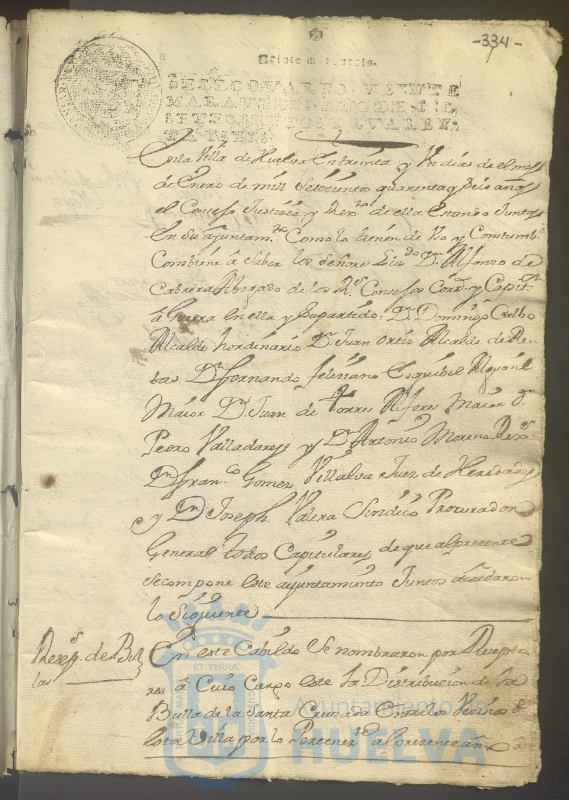 -334-
Veinte maravedis.
SELLO QVARTO, VEINTE
MARAVEDIS, AÑO DE MIL
SETECIENTOS Y QVAREN-
TA Y SEIS.
En la Villa de Huelva En treinta y Un dias de el mes
de Enero de mill Setecientos quarenta y seis años
el Consejo Justicia y Rexto de ella Estando Juntos
en Su ayuntamto Como lo tienen de Uso y Costumbe
Combiene a saber los Señores Lizdo Dn Alfonso de
Cabrera Abogado de los Rs Consejos Corror y Capitn
a guerra en ella y Supartido; Dn Domingo Cralbo
Alcalde hordinario Dn Juan Ortiz Alcalde de Ren
tas Dn Fernando feliziano Esquibel Alguasil
Maior Dn Juan de Torres Alferes Maior Dn
Pedro Valladares y Dn Antonio Moreno Rexs
Dn Franco Gomez Villalva Juez de Heredades
y Dn Joseph Valera Sindico Procurador
General todos Capitulares de que al presente
se compone este ayuntamiento Juntos acordaron
lo Siguiente
Resepes de Bu
las
En este Cabildo Se nombraron por Resepto
res a Cuio Cargo este la Distribuzion de la
Bulla de la Santa Cruzada En a los Vecinos de
esta Villa por lo Perteneze al presente año
PORTUS MARIS ET TERRÆ
Ayuntamiento de
HUELVA